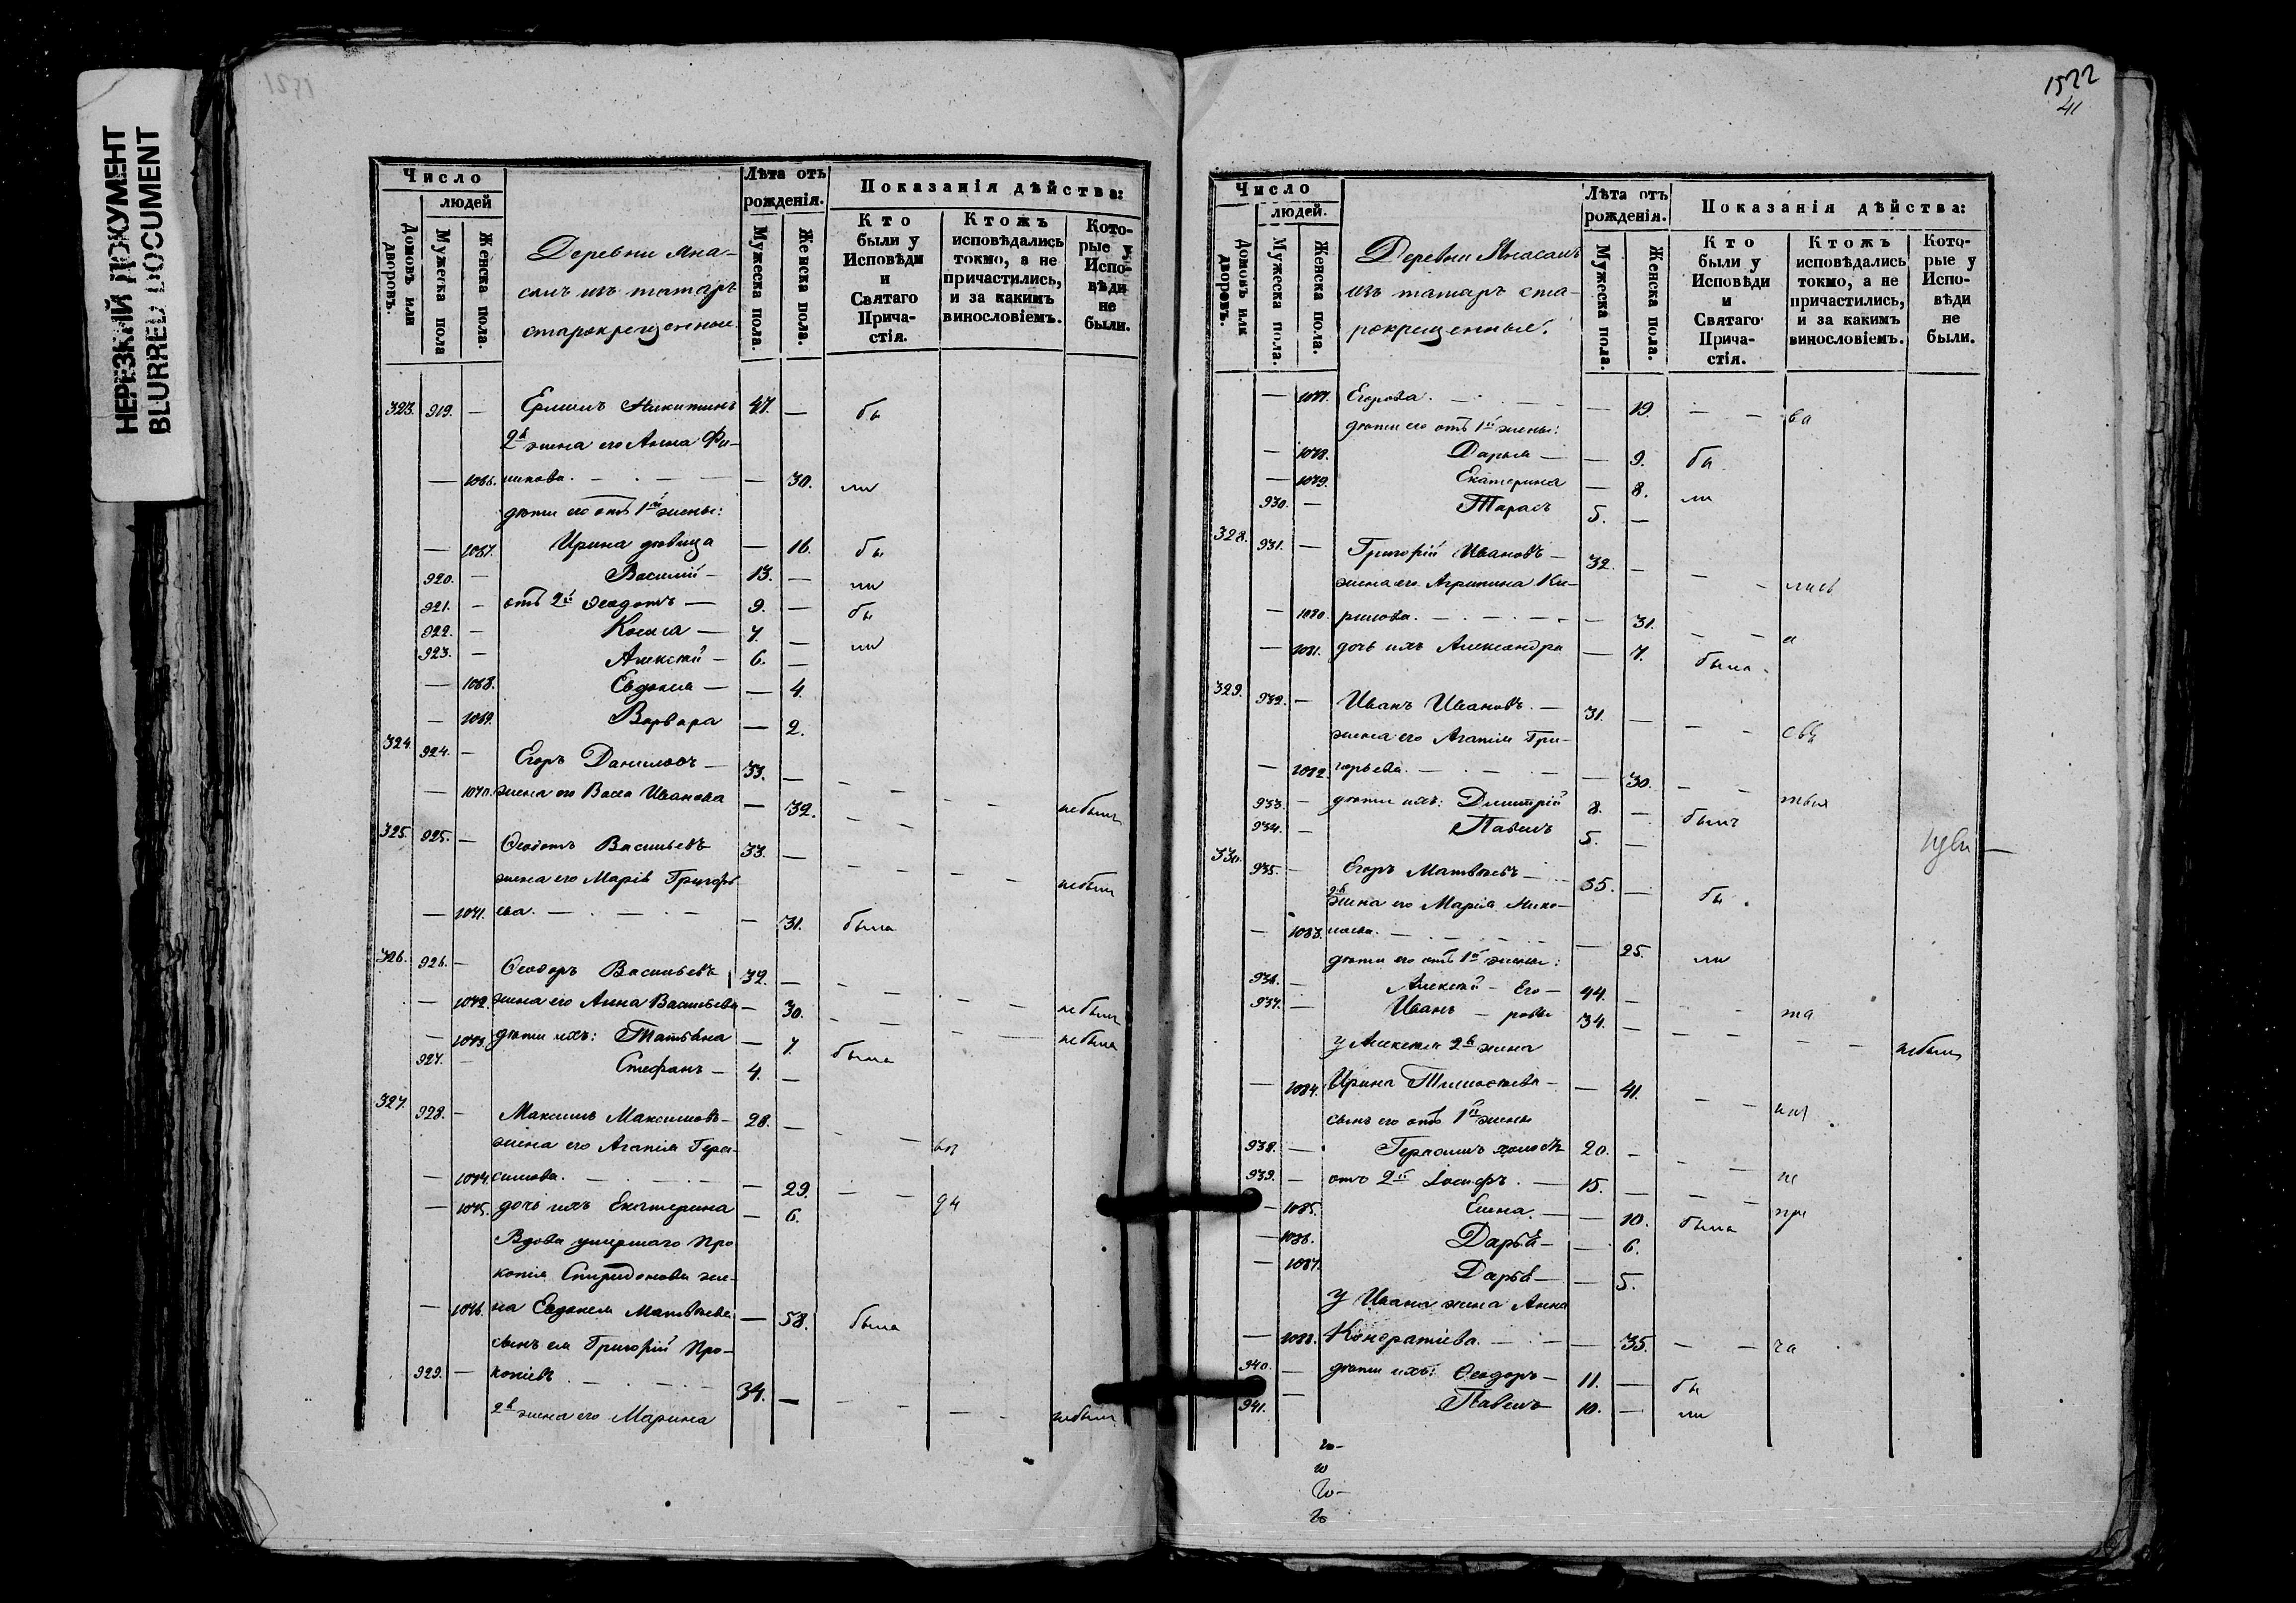 НЕРЕЗКИЙ ДОКУМЕНТ
BLURRED DOCUMENT
Число
людей
Домовъ или дворовъ.
Мужеска пола
Женска пола.
Деревни Яна-
салъ изъ татаръ
старокрещенные.
Лѣта отъ рожденія.
Мужеска пола.
Женска пола.
Показанія дѣйства:
Кто были у Исповѣди и Святаго Прича-стія.
Ктожъ исповѣдались токмо, а не причастились, и за какимъ винословіемъ.
Кото-рые у Испо-вѣди не были.
323. 919. — Ермилъ Никитинъ 47. — бы
2я жена его Анна Фи-
— 1066. липова. — 30. ли
дѣти его отъ 1й жены:
— 1067. Ирина дѣвица — 16. бы
920. — Василій — 13. — ли
921. — отъ 2й Ѳеодотъ — 9. — бы
922. — Косма — 7. — ли
923. — Алексѣй — 6. —
— 1068. Евдокия — — 4.
— 1069. Варвара — 2.
324. 924. — Егоръ Даниловъ — 33. —
— 1070. жена его Васса Иванова — 32. небыли
325. 925. — Ѳеодотъ Васильевъ 33. —
жена его Марія Григорь небылъ
— 1071. ева. — 31. была
326. 926. — Ѳеодоръ Васильевъ 32. —
— 1072. жена его Анна Васильева — 30. небылъ
— 1073. дѣти ихъ: Татьяна — 7. была небыла
927. — Стефанъ — 4. —
327. 928. — Максимъ Максимовъ — 28. —
жена его Агапія Гера-
— 1074. симова. — 29.
— 1075. дочь ихъ Екатерина — 6.
Вдова умершаго Про
копія Спиридонова же-
— 1076. на Евдокия Матвѣева — 58. была
сынъ ея Григорій Про-
929. — копіевъ 34. —
2я жена его Марина небылъ
1522
41
Число
людей.
Домовъ или дворовъ.
Мужеска пола.
Женска пола.
Деревни Янасалъ
изъ татаръ ста-
рокрещенные.
Лѣта отъ рожденія.
Мужеска пола.
Женска пола.
Показанія дѣйства:
Кто были у Исповѣди и Святаго Прича-стія.
Ктожъ исповѣдались токмо, а не причастились, и за какимъ винословіемъ.
Кото-рые у Испо-вѣди не были.
— 1077. Егорова. — 19. — — ва
дѣти его отъ 1й жены:
— 1078. Дарья — — 9. бы
— 1079. Екатерина — 8. ли
930. — Тарасъ 5. —
328. 931. — Григорій Ивановъ — 32. —
жена его Агрипина Ки-
— 1080. рилова. — 31. — — а
— 1081. дочь ихъ Александра — 7. была
329. 932. — Иванъ Ивановъ. — 31. —
жена его Агапія Гри-
— 1082. горьева. — 30.
933. — дѣти ихъ: Дмитрій 8. — былъ
934. — Павелъ 5. —
330. 935. — Егоръ Матвѣевъ — 35. — бы
2я жена его Марія Нико-
— 1083. лаева. — 25. ли
дѣти его отъ 1й жены:
936. — Алексѣй — Его- 44. —
937. — Иванъ — ровы 34. —
у Алексѣя 2я жена небылъ
— 1084. Ирина Тимоѳеева — — 41.
сынъ его отъ 1й жены
938. — Герасимъ холостъ 20. — не
939. — отъ 2й Іосифъ. — 15. — при
— 1085. Елена. — 10. была
— 1086. Дарья — — 6.
— 1087. Дарья — — 5.
у Ивана жена Анна
— 1088. Кондратіева. — 35. — — ча
940. — дѣти ихъ: Ѳеодоръ — 11. — бы
941. — Павелъ 10. — ли